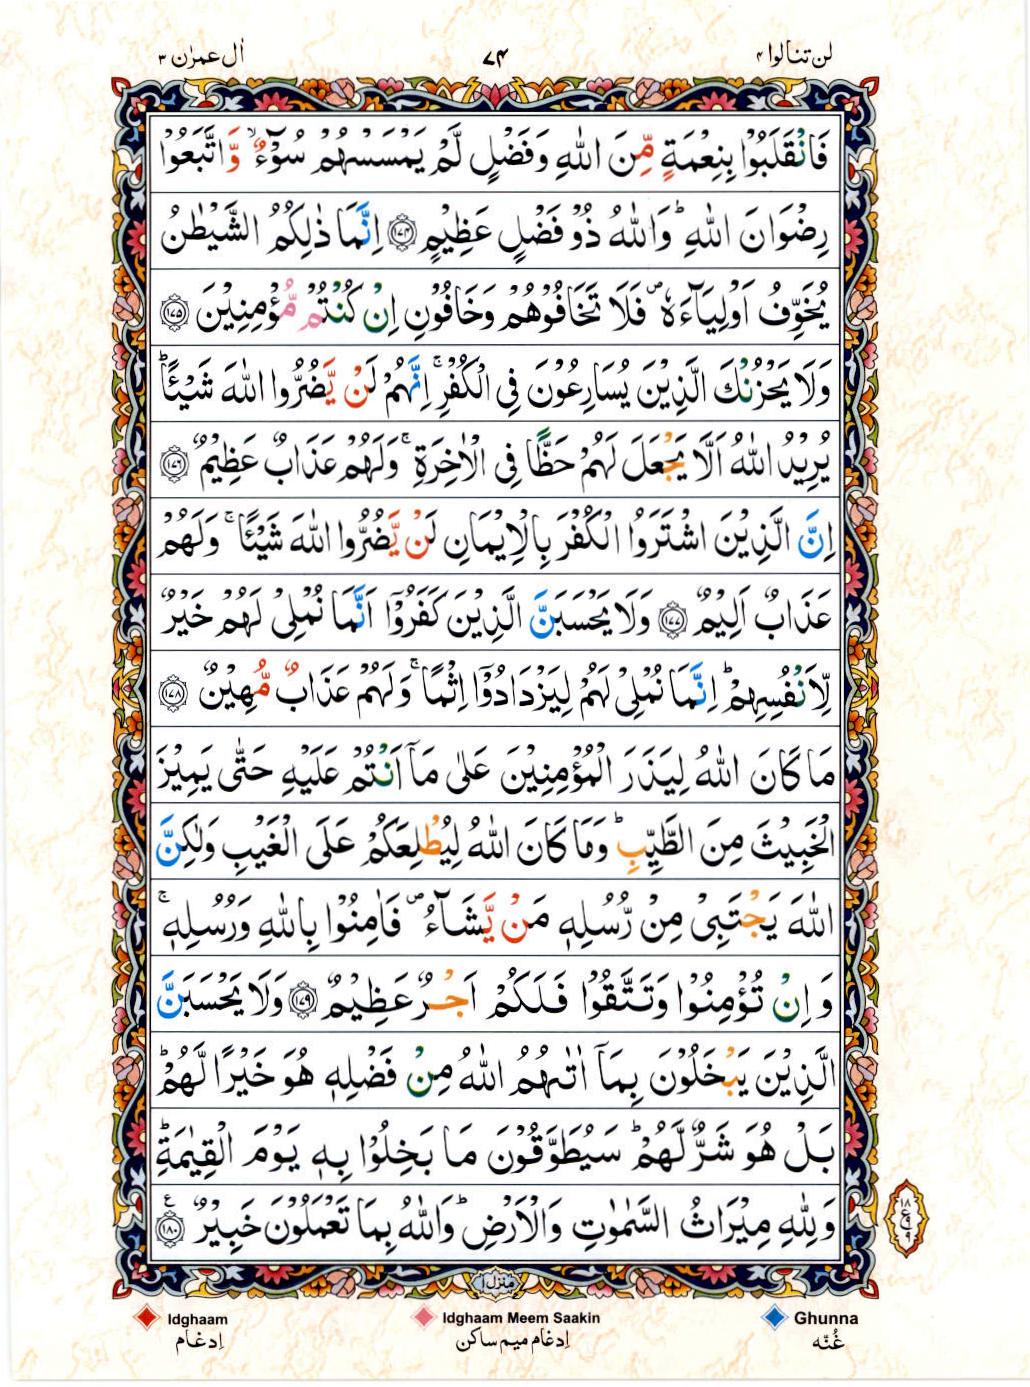 لن تنالوا ۴ ۷۴ اٰل عمرٰن ۳
فَانْقَلَبُوْا بِنِعْمَةٍ مِّنَ اللّٰهِ وَفَضْلٍ لَّمْ يَمْسَسْهُمْ سُوْٓءٌ ۙ وَّاتَّبَعُوْا
رِضْوَانَ اللّٰهِ ؕ وَاللّٰهُ ذُوْ فَضْلٍ عَظِيْمٍ ﴿۱۷۴﴾ اِنَّمَا ذٰلِكُمُ الشَّيْطٰنُ
يُخَوِّفُ اَوْلِيَآءَهٗ ۪ فَلَا تَخَافُوْهُمْ وَخَافُوْنِ اِنْ كُنْتُمْ مُّؤْمِنِيْنَ ﴿۱۷۵﴾
وَلَا يَحْزُنْكَ الَّذِيْنَ يُسَارِعُوْنَ فِى الْكُفْرِ ۚ اِنَّهُمْ لَنْ يَّضُرُّوا اللّٰهَ شَيْـًٔا ؕ
يُرِيْدُ اللّٰهُ اَلَّا يَجْعَلَ لَهُمْ حَظًّا فِى الْاٰخِرَةِ ۚ وَلَهُمْ عَذَابٌ عَظِيْمٌ ﴿۱۷۶﴾
اِنَّ الَّذِيْنَ اشْتَرَوُا الْكُفْرَ بِالْاِيْمَانِ لَنْ يَّضُرُّوا اللّٰهَ شَيْـًٔا ۚ وَلَهُمْ
عَذَابٌ اَلِيْمٌ ﴿۱۷۷﴾ وَلَا يَحْسَبَنَّ الَّذِيْنَ كَفَرُوْۤا اَنَّمَا نُمْلِىْ لَهُمْ خَيْرٌ
لِّاَنْفُسِهِمْ ؕ اِنَّمَا نُمْلِىْ لَهُمْ لِيَزْدَادُوْۤا اِثْمًا ۚ وَلَهُمْ عَذَابٌ مُّهِيْنٌ ﴿۱۷۸﴾
مَا كَانَ اللّٰهُ لِيَذَرَ الْمُؤْمِنِيْنَ عَلٰى مَاۤ اَنْتُمْ عَلَيْهِ حَتّٰى يَمِيْزَ
الْخَبِيْثَ مِنَ الطَّيِّبِ ؕ وَمَا كَانَ اللّٰهُ لِيُطْلِعَكُمْ عَلَى الْغَيْبِ وَلٰكِنَّ
اللّٰهَ يَجْتَبِىْ مِنْ رُّسُلِهٖ مَنْ يَّشَآءُ ۪ فَاٰمِنُوْا بِاللّٰهِ وَرُسُلِهٖ ۚ
وَاِنْ تُؤْمِنُوْا وَتَتَّقُوْا فَلَكُمْ اَجْرٌ عَظِيْمٌ ﴿۱۷۹﴾ وَلَا يَحْسَبَنَّ
الَّذِيْنَ يَبْخَلُوْنَ بِمَاۤ اٰتٰىهُمُ اللّٰهُ مِنْ فَضْلِهٖ هُوَ خَيْرًا لَّهُمْ ؕ
بَلْ هُوَ شَرٌّ لَّهُمْ ؕ سَيُطَوَّقُوْنَ مَا بَخِلُوْا بِهٖ يَوْمَ الْقِيٰمَةِ ؕ
وَلِلّٰهِ مِيْرَاثُ السَّمٰوٰتِ وَالْاَرْضِ ؕ وَاللّٰهُ بِمَا تَعْمَلُوْنَ خَبِيْرٌ ﴿۱۸۰﴾ ع
منزل ۱
Idghaam Idghaam Meem Saakin Ghunna
اِدغام اِدغام میم ساکن غُنّه